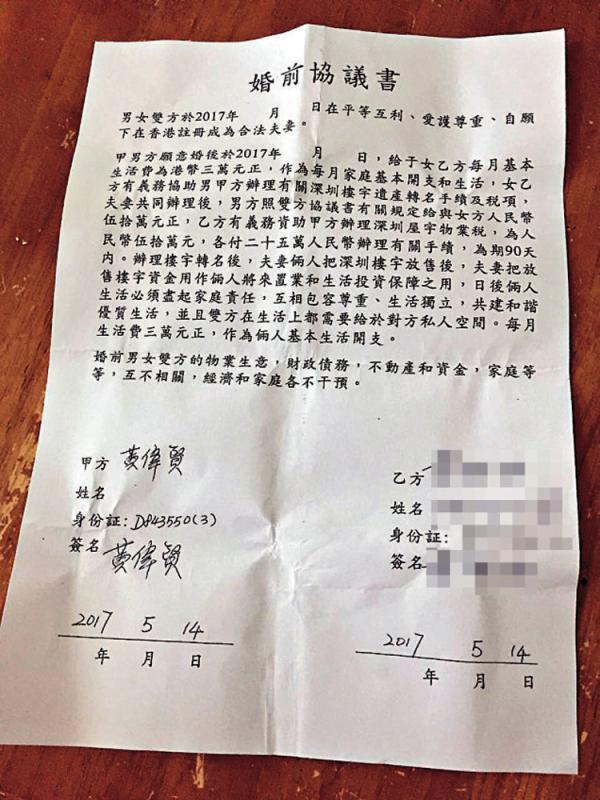 婚前協議書
男女雙方於2017年 月 日在平等互利、愛護尊重、自願
下在香港註冊成為合法夫妻。
甲男方願意婚後於2017年 月 日,給于女乙方每月基本
生活費為港幣三萬元正,作為每月家庭基本開支和生活,女乙
方有義務協助男甲方辦理有關深圳樓宇遺產轉名手續及稅項,
夫妻共同辦理後,男方照雙方協議書有關規定給與女方人民幣
伍拾萬元正,乙方有義務資助甲方辦理深圳屋宇物業稅,為人
民幣伍拾萬元,各付二十五萬人民幣辦理有關手續,為期90天
內。辦理樓宇轉名後,夫妻倆人把深圳樓宇放售後,夫妻把放
售樓宇資金用作倆人將來置業和生活投資保障之用,日後倆人
生活必須盡起家庭責任,互相包容尊重、生活獨立,共建和諧
優質生活,並且雙方在生活上都需要給於對方私人空間。每月
生活費三萬元正,作為倆人基本生活開支。
婚前男女雙方的物業生意,財政債務,不動產和資金,家庭等
等,互不相關,經濟和家庭各不干預。
甲方 黃偉賢
姓名
身份証:D843550(3)
簽名 黃偉賢
2017 5 14
年 月 日
乙方
姓名
身份証:
簽名
2017 5 14
年 月 日